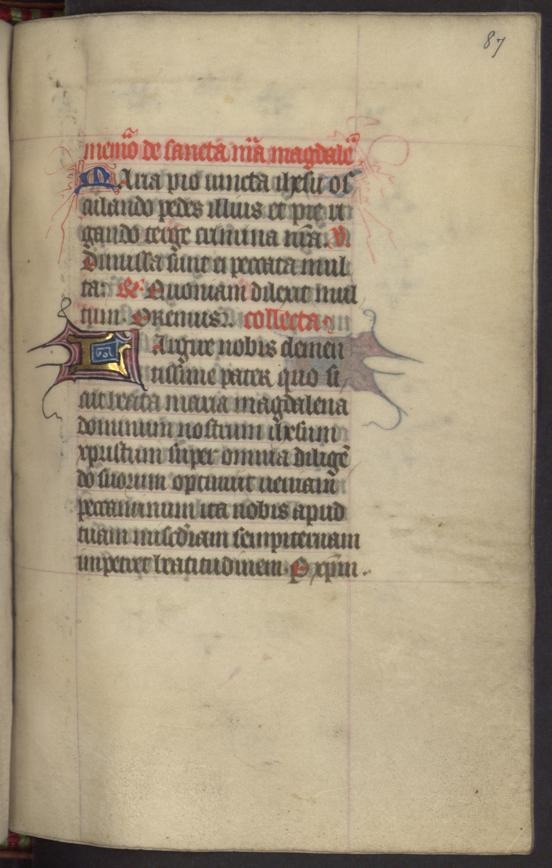 87
memō de sancta m̄a magdalē
Maria pio iuncta ihesu os
culando pedes illius et pre ri
gando terge crimina nr̄a. V.
Dimissa sunt ei peccata mul
ta. R. Quoniam dilexit mul
tum. Oremus. collecta.
Largire nobis clemen
tissime pater quo si
cut beata maria magdalena
dominum nostrum ihesum
xpristum super omnia diligē
do suorum optinuit ueniam
peccaminum ita nobis apud
tuam misc̄diam sempiternam
impetret beatitudinem. P xp̄m.